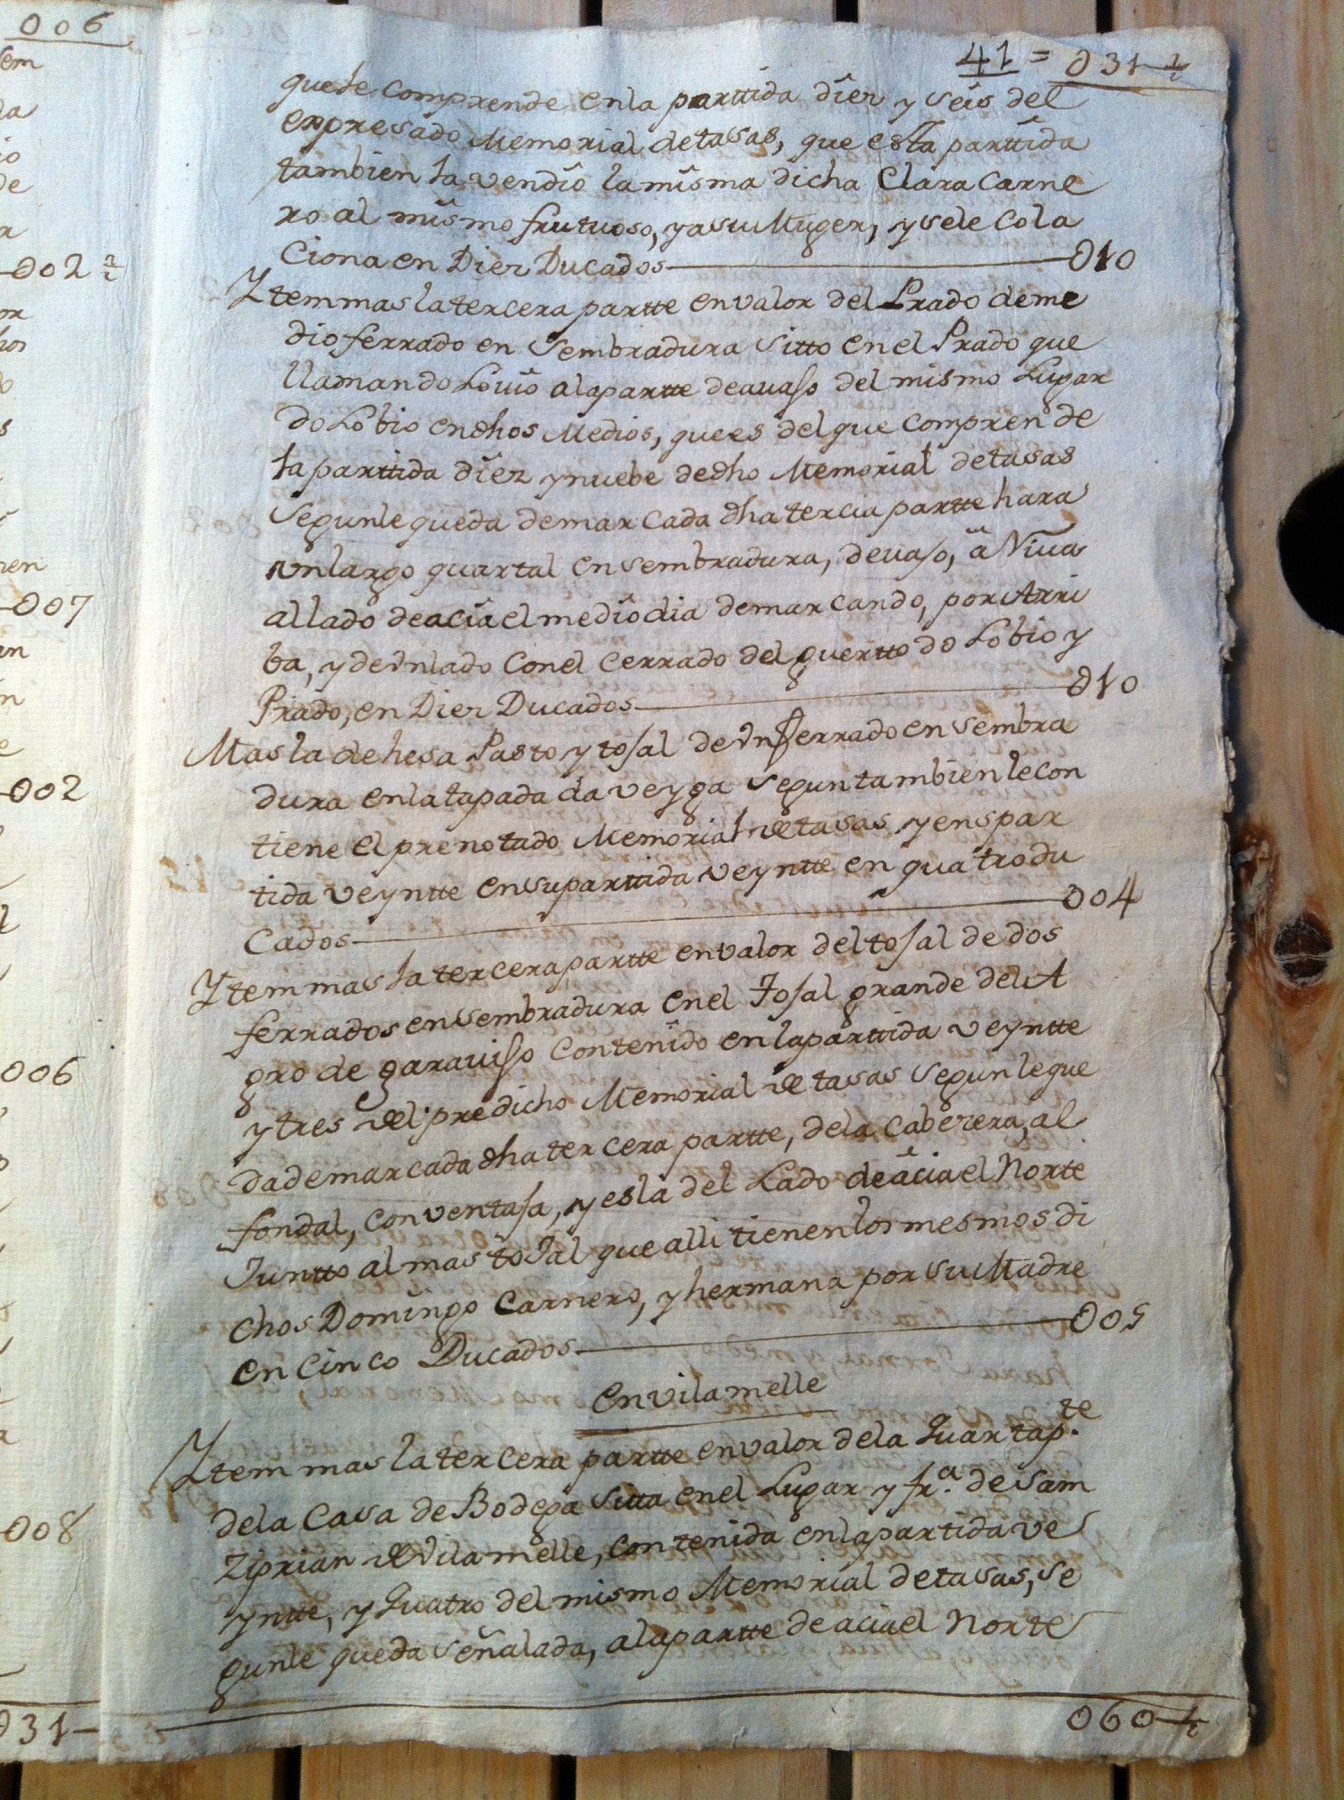 006
002 ½
007
002
006
008
031
41 = 031 ½
que se comprende en la parttida diez y seis del
expresado Memorial de tasas, que esta parttida
tambien la vendio la misma dicha Clara Carne
ro al mismo frutuoso, y a su Muger, y se le Cola
Ciona en Diez Ducados 010
Ytem mas la tercera partte en valor del Prado de me
dio ferrado en Sembradura Sitto en el Prado que
llaman do Lovio a la partte de avaso del mismo Lugar
do Lobio en dhos Medios, que es del que Comprende
la parttida diez y nuebe de dho Memorial de tasas
Segun le queda demarcada dha tercia partte hara
Un largo quartal en sembradura, de vaso, â Riva
al lado de acia el mediodia demarcando, por Arri
ba, y de Un lado Con el Cerrado del guertto do Lobio y
Prado, en Diez Ducados 010
Mas la dehesa Pasto y tosal de Un ferrado en sembra
dura en la tapada da veyga segun tambien le con
tiene el prenotado Memorial de tasas y en s par
tida veyntte en su parttida veyntte en quatro du
Cados 004
Ytem mas la tercera partte en valor del tosal de dos
ferrados en sembradura en el Tosal grande del A
gro de garaviso Contenido en la parttida veyntte
y tres del predicho Memorial de tasas segun le que
da demarcada dha tercera partte, de la Cabezera, al
fondal, con ventasa, y es la del Lado de âcia el Norte
Juntto al mas toJal que alli tienen los mesmos di
chos Domingo Carnero, y hermana por su Madre
en Cinco Ducados 005
En vilamelle
Ytem mas la tercera partte en valor de la Quarta p.te
de la Casa de Bodega sitta en el Lugar y fr.a de Sam
Ziprian de Vilamelle, contenida en la partida ve
yntte, y Quatro del mismo Memorial de tasas, se
gun le queda señalada, a la partte de acia el Norte
060 ½